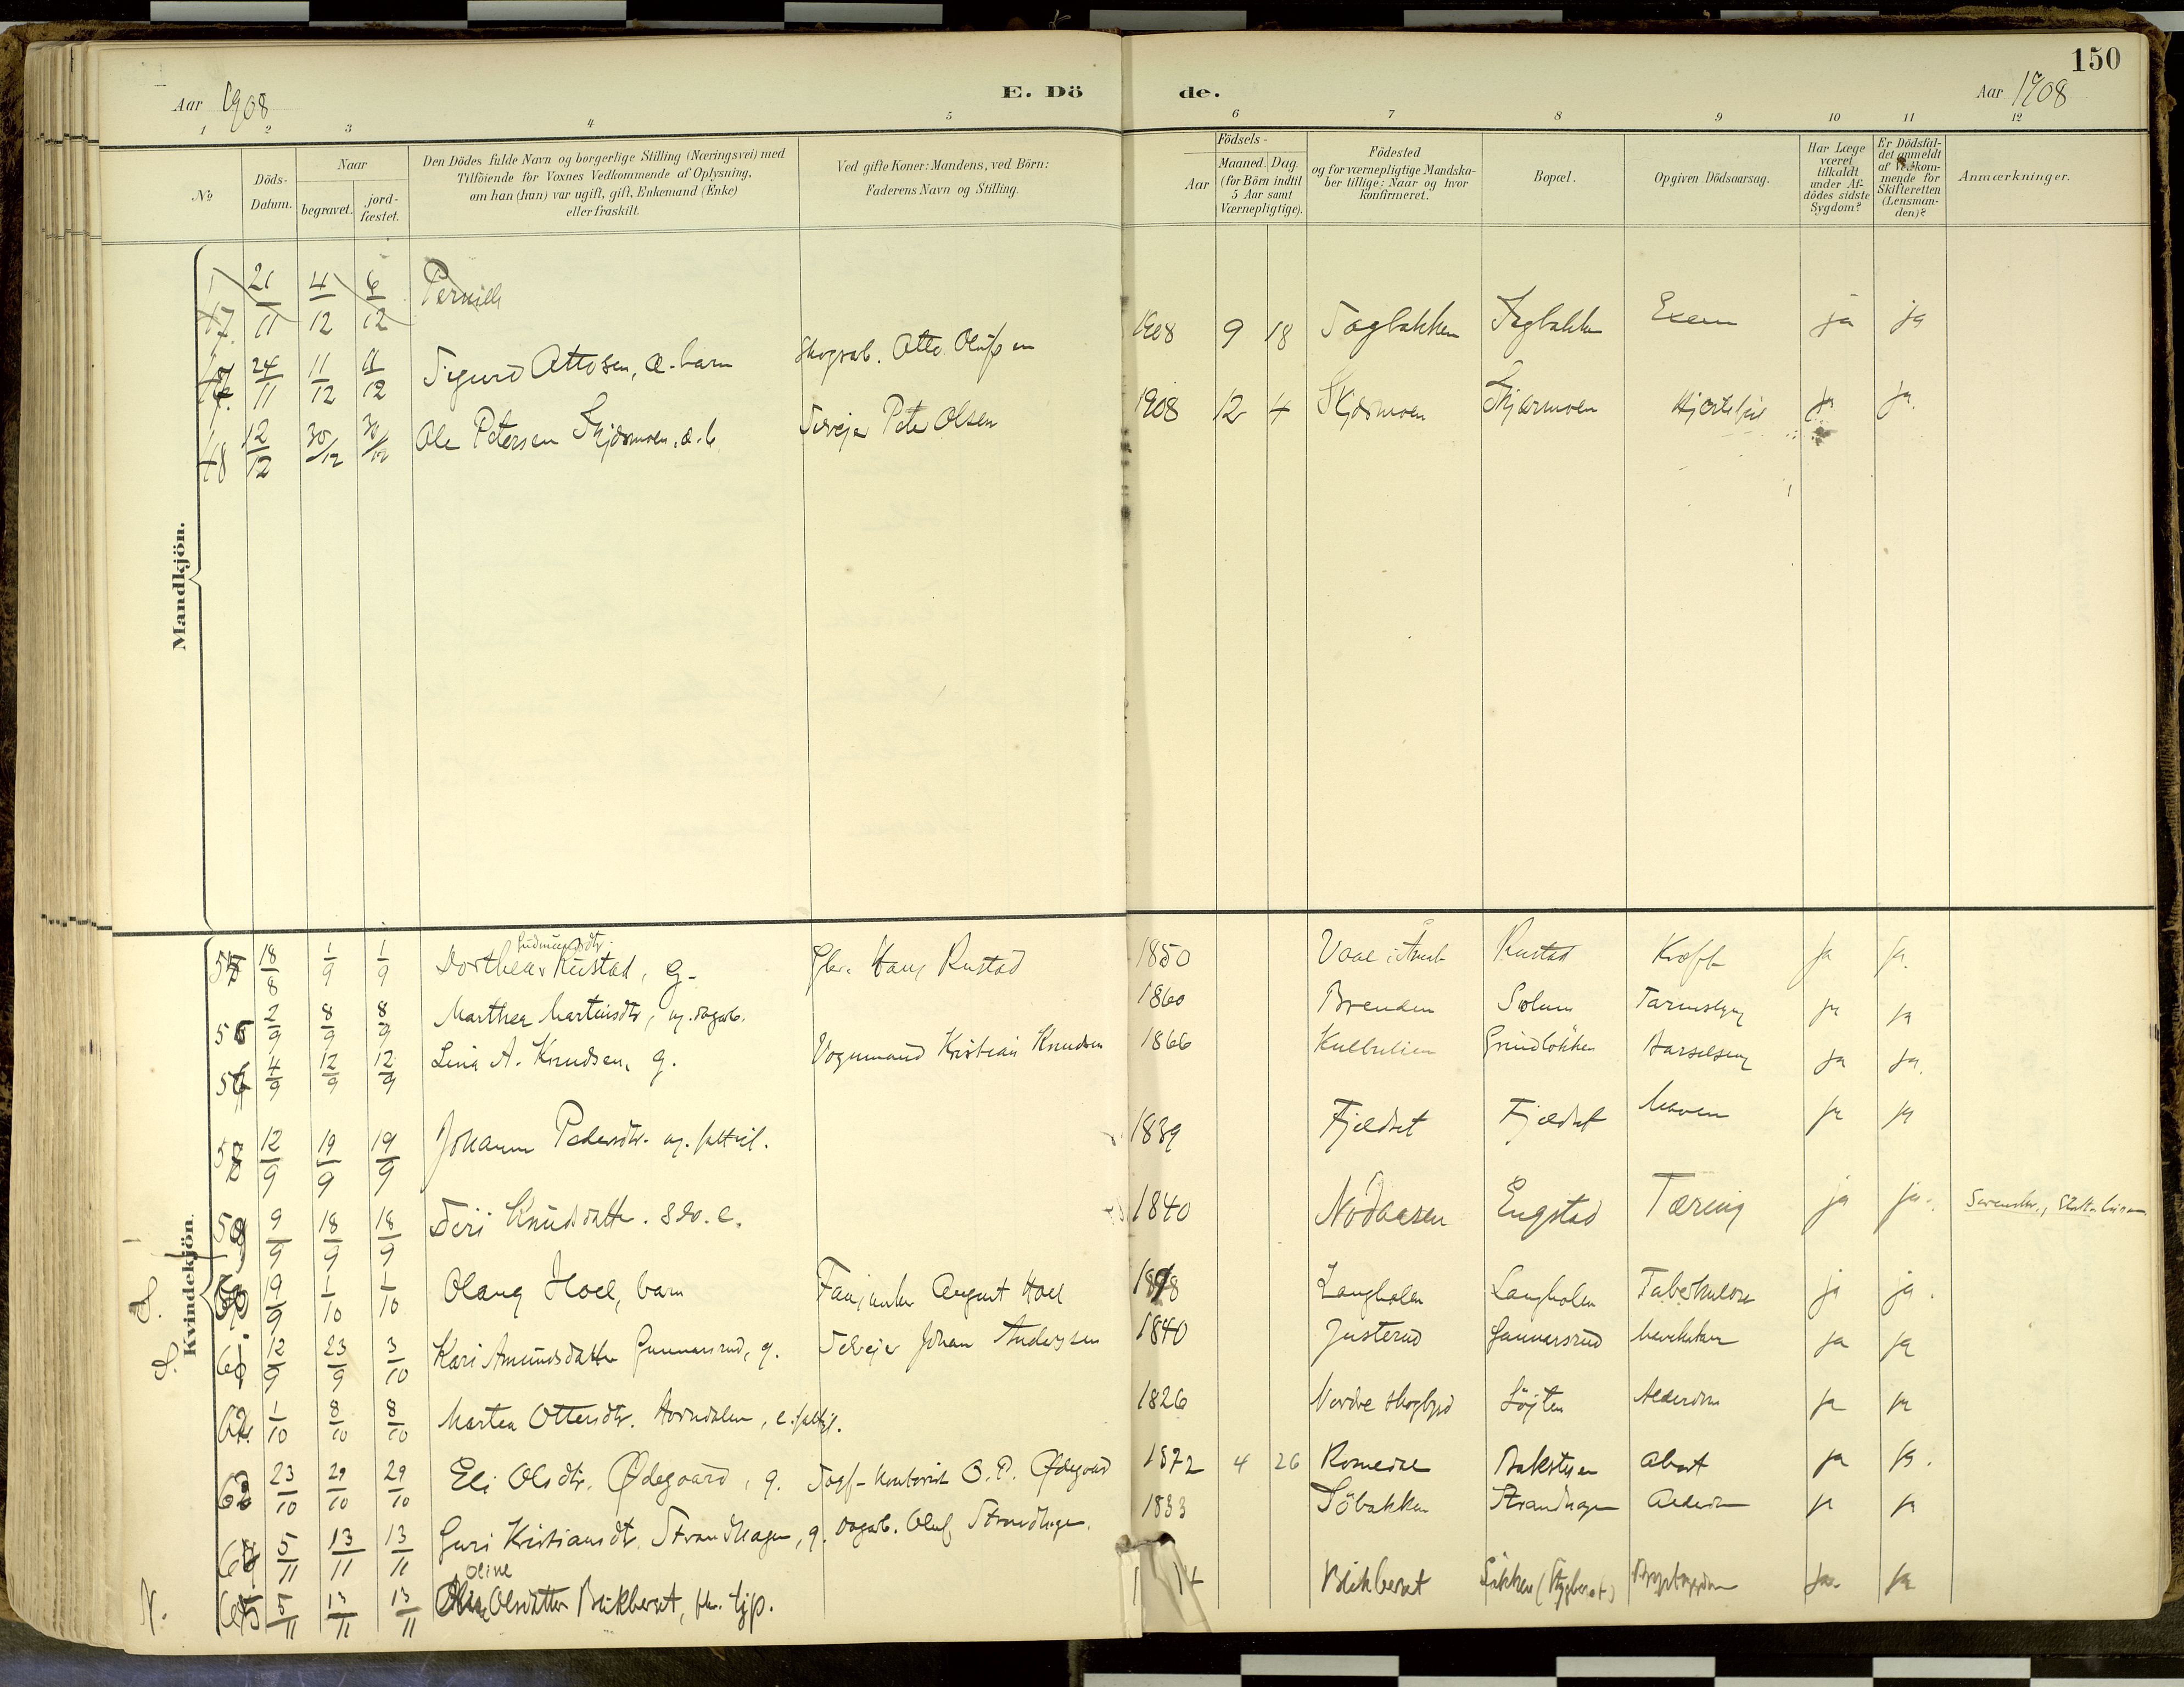 150
Aar 1908
E. Döde.
Aar 1908
1 2 3 4 5 6 7 8 9 10 11 12
No
Döds-Datum.
Naar
begravet.
jord-fæstet.
Den Dödes fulde Navn og borgerlige Stilling (Næringsvei) med
Tilföiende for Voxnes Vedkommende af Oplysning,
om han (hun) var ugift, gift, Enkemand (Enke)
eller fraskilt.
Ved gifte Koner: Mandens, ved Börn:
Faderens Navn og Stilling.
Födsels-
Aar
Maaned. Dag.
(for Börn indtil
5 Aar samt
Værnepligtige).
Födested
og for værnepligtige Mandska-
ber tillige: Naar og hvor
konfirmeret.
Bopæl.
Opgiven Dödsaarsag.
Har Læge
været
tilkaldt
under Af-
dödes sidste
Sygdom?
Er Dödsfal-
det anmeldt
af Vedkom-
mende for
Skifteretten
(Lensman-
den)?
Anmærkninger.
Mandkjön.
21/11 4/12 6/12 Pernille
47 24/11 11/12 11/12 Sigurd Ottosen, æ. barn Skogsarb. Otto Olufsen 1908 9 18 Sagbakken Sagbakken Exem ja ja
48 12/12 30/12 30/12 Ole Petersen Skjærmoen, æ. b. Selvejer Peter Olsen 1908 12 4 Skjærmoen Skjærmoen Hjertefeil ja ja.
Kvindekjön.
18/8 1/9 1/9 Dorthea Gudmundsdtr. Rustad, g. Gbr. Hans Rustad 1850 Vaal i Rustad Kræft ja ja.
55 2/9 8/9 8/9 Marthea Martinsdtr, ug. dagarb. 1860 Brenden Solum Tarmslyng ja ja
56 4/9 12/9 12/9 Lina A. Knudsen, g. Vognmand Kristian Knudsen 1866 Grindlökken Barselseng ja ja.
12/9 19/9 19/9 Johanne Pedersdtr. ug. fattigl. 1839 Fjeldset Fjeldset ja ja
9/9 18/9 18/9 Siri Knudsdatter. e. 1840 Nödaasen Engstad Tæring ja ja.
60 19/9 1/10 1/10 Olaug Hoel, barn Fanejunker August Hoel 1898 Langholen Langholen Tuberkulose ja ja.
61 12/9 23/9 3/10 Kari Amundsdatter Gunnarsrud, g. Selvejer Johan Andersen 1840 Justerud Gunnarsrud ja ja
62 1/10 8/10 8/10 Martea Ottersdtr. Hovndalen, e. fattigl. 1826 Nordre Skogbygd Löjten Alderdom ja ja
63 23/10 29/10 29/10 Eli Olsdtr. Ødegaard, g. O. P. Ødegaard 1872 4 26 Romedal Bakstuen Abort ja ja.
64 5/11 13/11 13/11 Guri Kristiansdtr. Strandhagen, g. Dagarb. Oluf Strandhagen. 1833 Söbakken Strandhagen Alderdom ja ja
N. 65 5/11 13/11 13/11 Oline Olsdatter Blikberget, fhv. tjp. Blikberget ja. ja